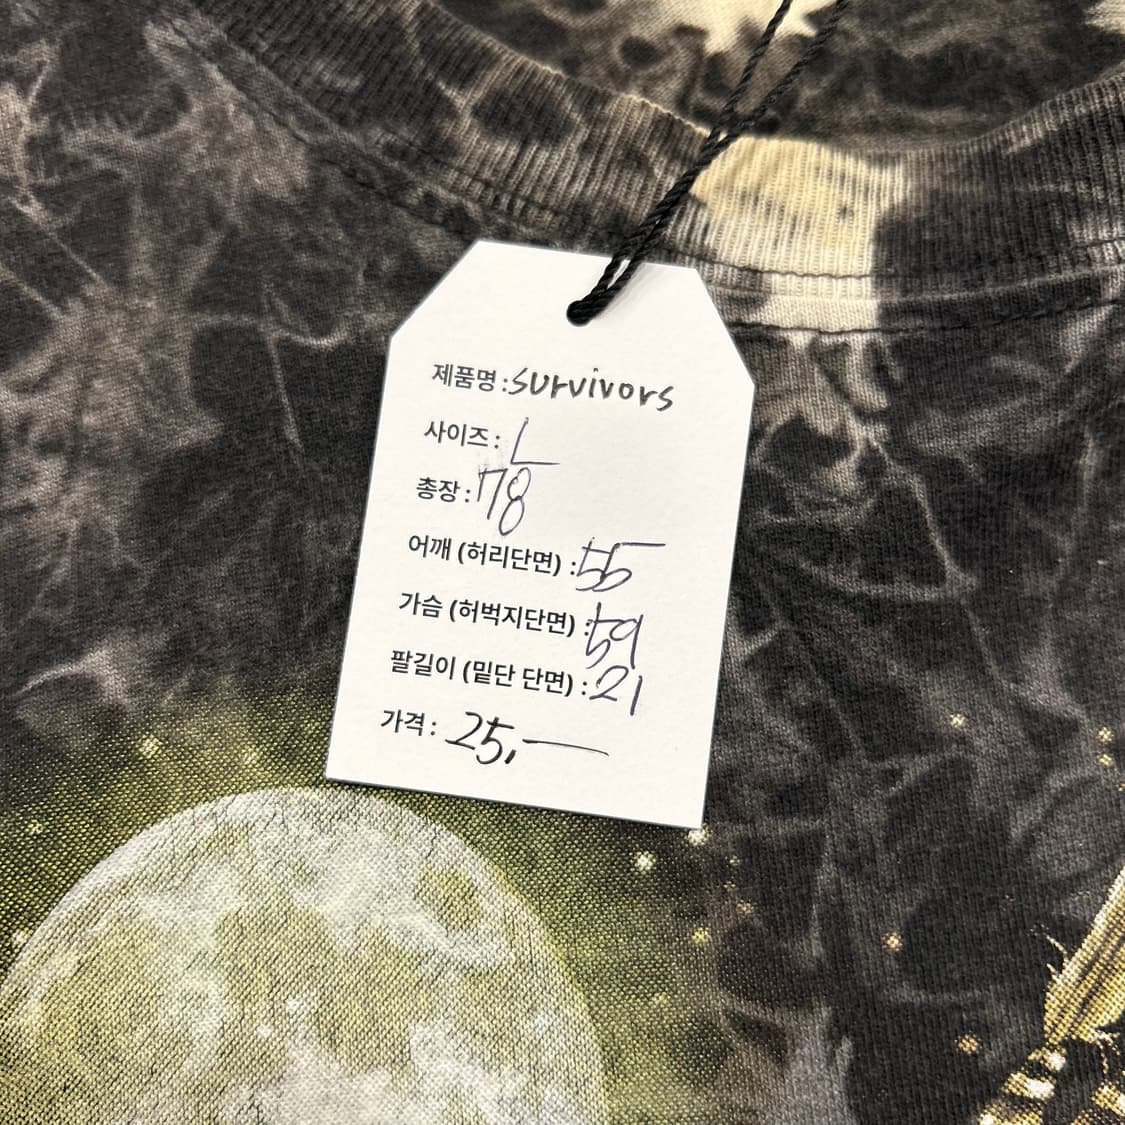 제품명 : survivors
사이즈 : L
총장 : 78
어깨 (허리단면) : 55
가슴 (허벅지단면) : 59
팔길이 (밑단 단면) : 21
가격 : 25,—